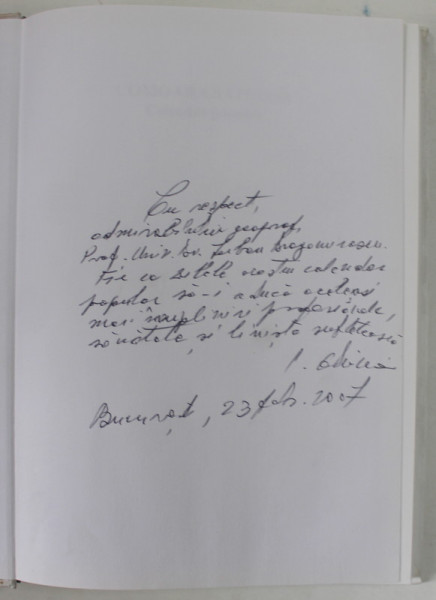 Cu respect,
admirabilului geograf,
Prof. Univ. Dr. Șerban Dragomirescu.
Fie ca zilele acestui calendar
popular să-i aducă aceleași
mari împliniri profesionale,
sănătate și liniște sufletească
I. Ghinoiu
București, 23 feb. 2007